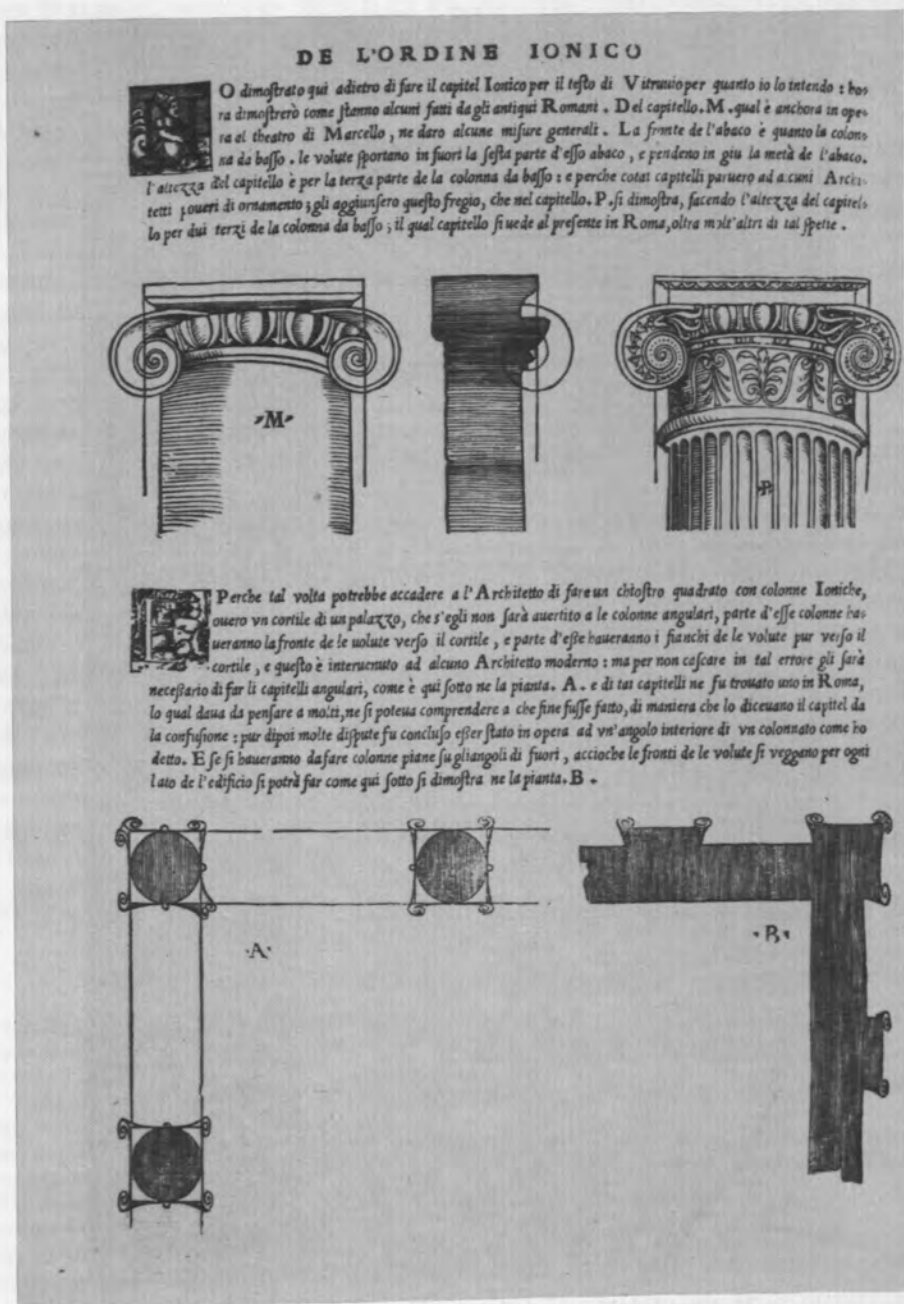 DE L'ORDINE IONICO
HO dimoſtrato qui adietro di fare il capitel Ionico per il teſto di Vitruuio per quanto io lo intendo : ho-
ra dimoſtrerò come ſtanno alcuni fatti da gli antiqui Romani . Del capitello . M . qual è anchora in ope-
ra al theatro di Marcello , ne daro alcune miſure generali . La fronte de l'abaco è quanto la colon-
na da baſſo . le volute ſportano in fuori la ſeſta parte d'eſſo abaco , e pendeno in giu la metà de l'abaco.
l'altezza del capitello è per la terza parte de la colonna da baſſo : e perche cotai capitelli paruero ad alcuni Archi-
tetti poueri di ornamento ; gli aggiunſero queſto fregio, che nel capitello . P . ſi dimoſtra, facendo l'altezza del capitel-
lo per dui terzi de la colonna da baſſo ; il qual capitello ſi uede al preſente in Roma, oltra molt'altri di tal ſpetie .
M
P
E Perche tal volta potrebbe accadere a l'Architetto di fare un chioſtro quadrato con colonne Ioniche,
ouero vn cortile di un palazzo, che s'egli non ſarà auertito a le colonne angulari, parte d'eſſe colonne ha-
ueranno la fronte de le uolute verſo il cortile , e parte d'eſſe haueranno i fianchi de le volute pur verſo il
cortile , e queſto è interuenuto ad alcuno Architetto moderno : ma per non caſcare in tal errore gli ſarà
neceſſario di far li capitelli angulari, come è qui ſotto ne la pianta . A . e di tai capitelli ne fu trouato uno in Roma,
lo qual daua da penſare a molti, ne ſi poteua comprendere a che fine fuſſe fatto, di maniera che lo diceuano il capitel da
la confuſione : pur dipoi molte diſpute fu concluſo eſſer ſtato in opera ad vn'angolo interiore di vn colonnato come ho
detto . E ſe ſi haueranno da fare colonne piane ſu gli angoli di fuori , accioche le fronti de le volute ſi veggano per ogni
lato de l'edificio ſi potrà far come qui ſotto ſi dimoſtra ne la pianta . B .
A
B